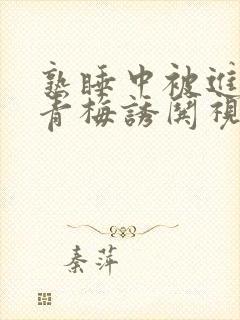 熟睡中被進
青梅誘関視
秦萍